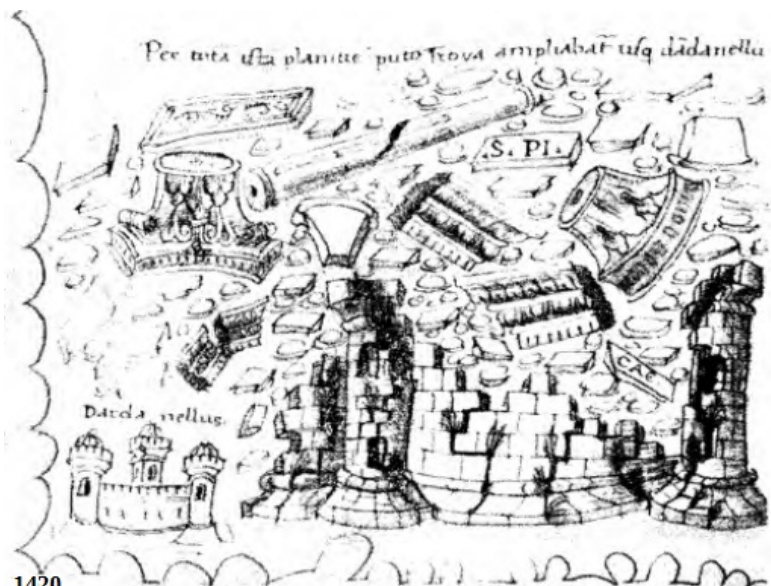 Per totā istā planitie puto Troya ampliabat̄ usq dādanellu
.S. PI.
CAE
Darda nellus.
1420